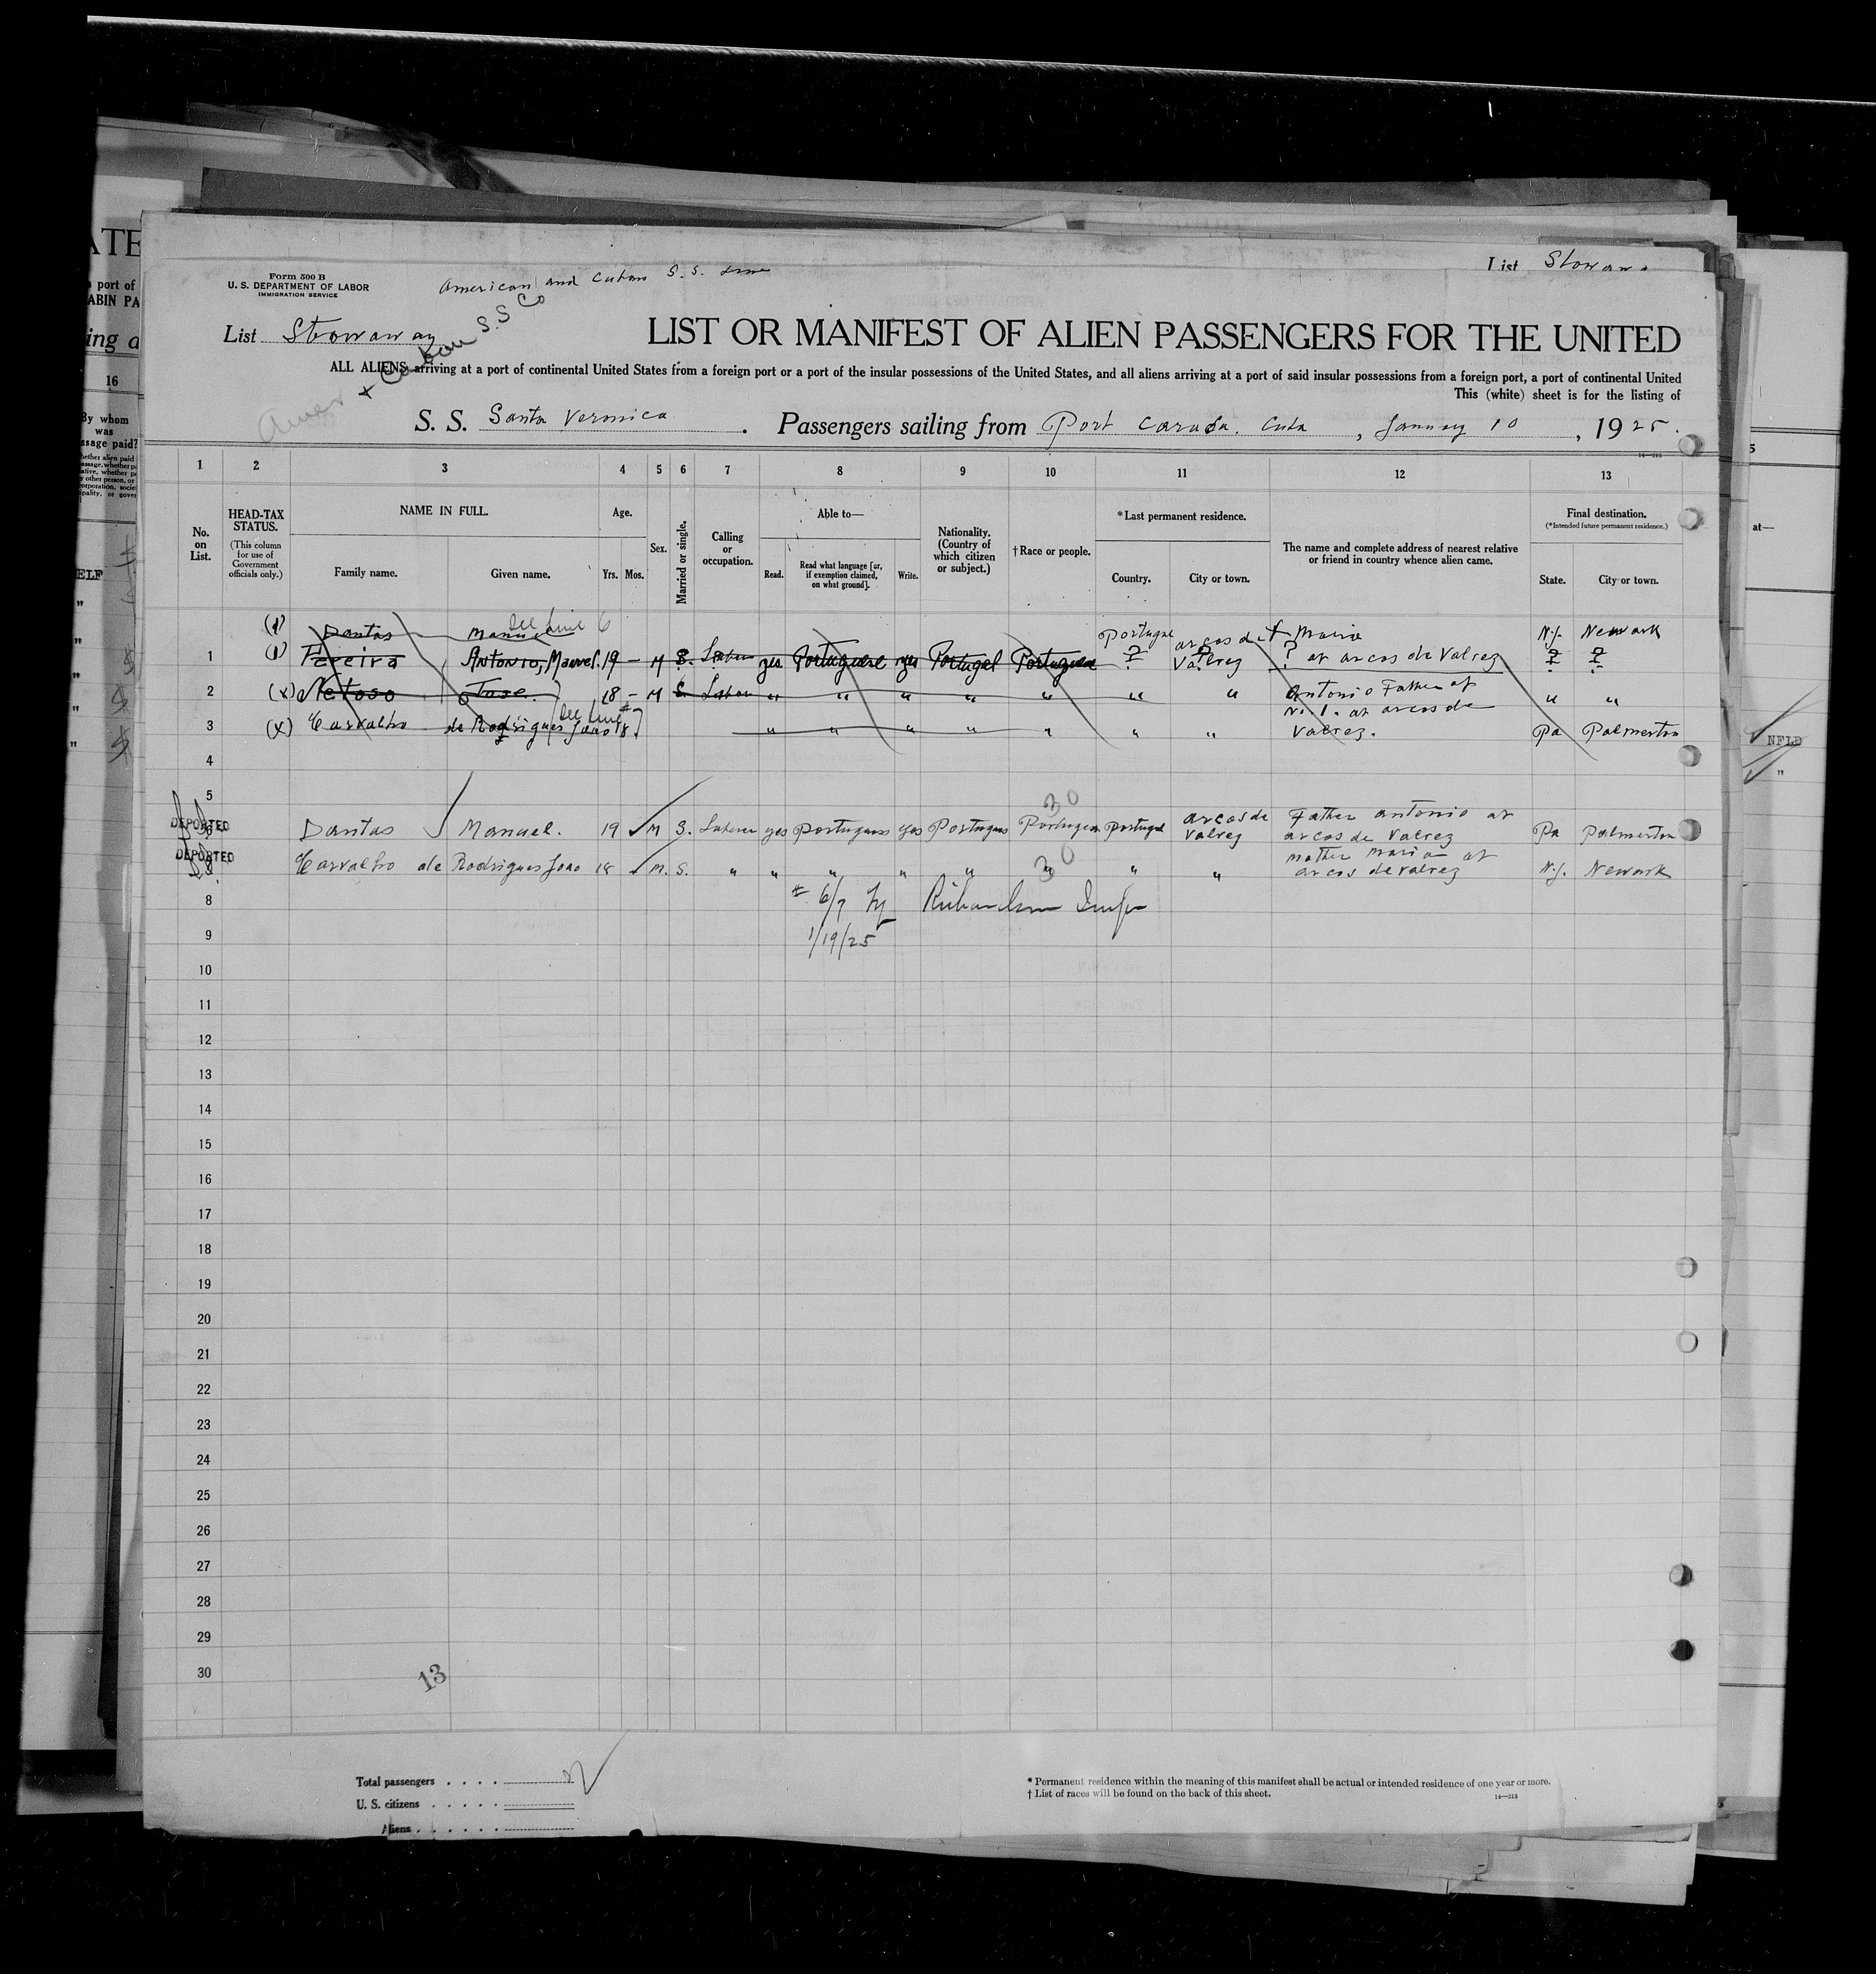 Form 500 B
U. S. DEPARTMENT OF LABOR
IMMIGRATION SERVICE
American and Cuban S. S. Line
List Stowaway
Cuban S.S Co
List
LIST OR MANIFEST OF ALIEN PASSENGERS FOR THE UNITED
ALL ALIENS arriving at a port of continental United States from a foreign port or a port of the insular possessions of the United States, and all aliens arriving at a port of said insular possessions from a foreign port, a port of continental United
This (white) sheet is for the listing of
S. S. Santa Veronica. Passengers sailing from Port, Cuba, January 10, 1925.
14—213
1 2 3 4 5 6 7 8 9 10 11 12 13
No. on List.
HEAD-TAX STATUS.
(This column for use of Government officials only.)
NAME IN FULL.
Family name. Given name.
Age.
Yrs. Mos.
Sex.
Married or single.
Calling or occupation.
Able to—
Read. Read what language [or, if exemption claimed, on what ground]. Write.
Nationality. (Country of which citizen or subject.)
†Race or people.
*Last permanent residence.
Country. City or town.
The name and complete address of nearest relative or friend in country whence alien came.
Final destination.
(*Intended future permanent residence.)
State. City or town.
See Line 6
(1) Dantas Manuel Portugal Arcos de Maria N.J. Newark
1 (1) Pereira Antonio, Manuel. 19 — M S. Laborer yes Portuguese yes Portugal Portuguese ? Valvez ? at arcos de Valvez ? ?
2 (x) Jose. 18 — M S. Laborer " " " " " " " Antonio Father of " "
No. 1. at arcos de
3 (x) Carvalho de Rodrigues Joao 18 " " " " " " " Valvez. Pa Palmerton
4
5
DEPORTED Dantas Manuel. 19 M S. Laborer yes Portuguese yes Portuguese Portuguese Portugal arcos de Valvez Father antonio at arcos de Valvez Pa Palmerton
30
DEPORTED Carvalho de Rodrigues Joao 18 M. S. " " " " " " " " mother maria at arcos de Valvez N.J. Newark
30
8 # 6/7 Richardson Insp
9 1/19/25
10
11
12
13
14
15
16
17
18
19
20
21
22
23
24
25
26
27
28
29
30
13
Total passengers
U. S. citizens
Aliens
* Permanent residence within the meaning of this manifest shall be actual or intended residence of one year or more.
† List of races will be found on the back of this sheet.
14—213
16
By whom was
NFLD
"
at—